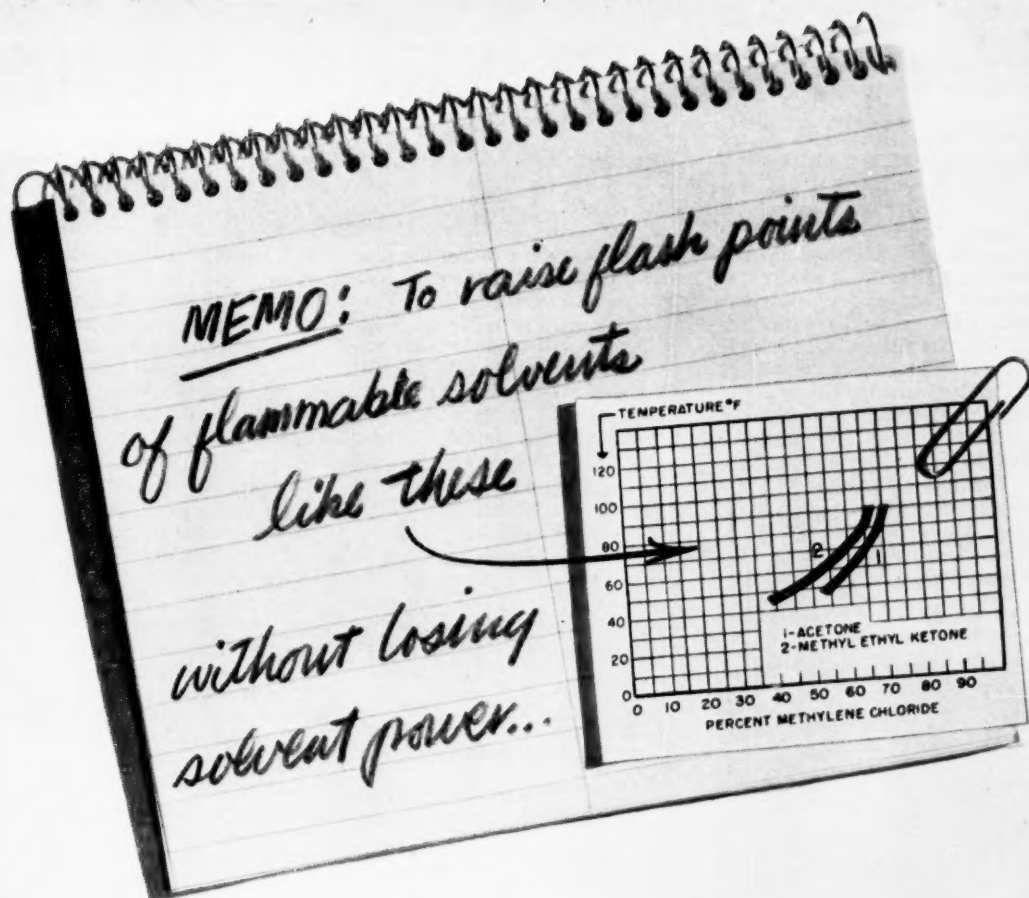 MEMO: To raise flash points
of flammable solvents
like these
without losing
solvent power...
TEMPERATURE °F
120
100
80
60
40
20
0
2
1
1-ACETONE
2-METHYL ETHYL KETONE
0 10 20 30 40 50 60 70 80 90
PERCENT METHYLENE CHLORIDE